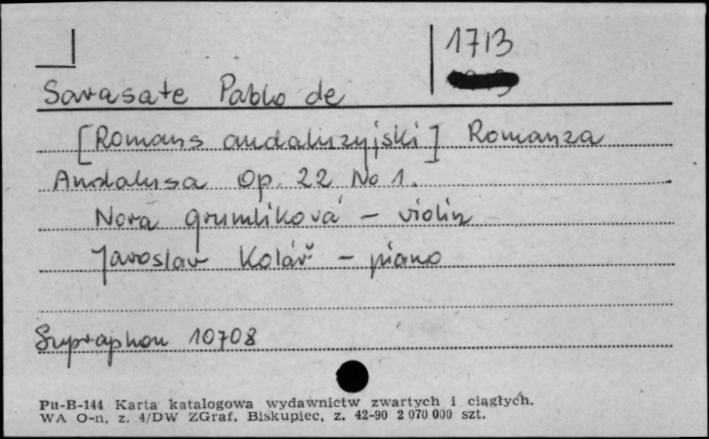 1713
Sarasate Pablo de
[Romans andaluzyjski] Romanza
Andalusa Op. 22 No 1.
Nora Grumliková - violin
Jaroslav Kolář - piano
Supraphon 10708
Pu-B-144 Karta katalogowa wydawnictw zwartych i ciągłych.
WA O-n, z. 4/DW ZGraf. Biskupiec, z. 42-90 2 070 000 szt.